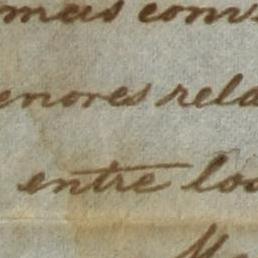 mas conv
enores rela
entre lo
M